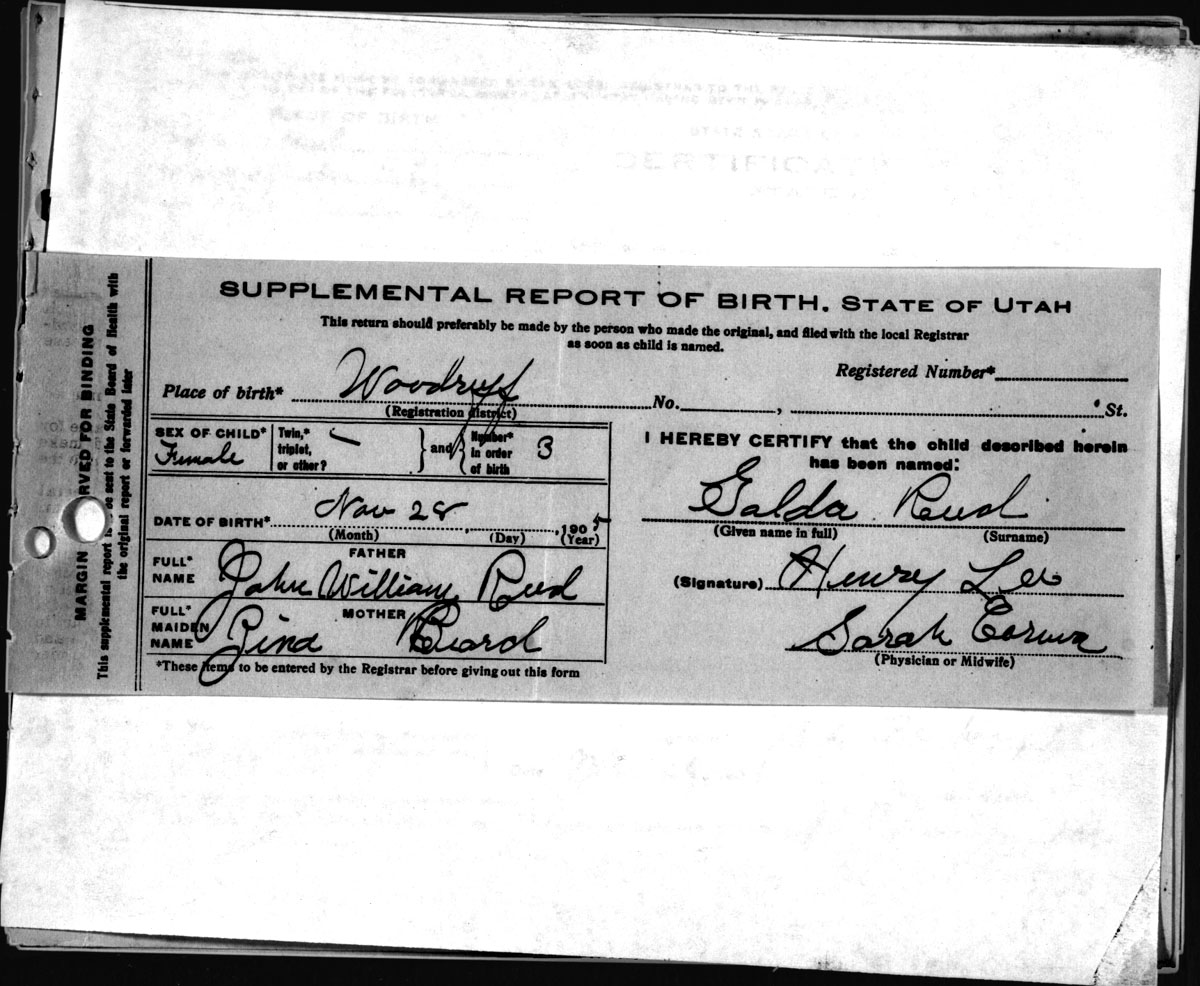 SUPPLEMENTAL REPORT OF BIRTH. STATE OF UTAH
This return should preferably be made by the person who made the original, and filed with the local Registrar
as soon as child is named.
Registered Number*
Place of birth* Woodruff No. , St.
(Registration district)
SEX OF CHILD* Female
Twin,* triplet, or other? —
and
Number* in order of birth 3
DATE OF BIRTH* Nov 28 , 1905
(Month) (Day) (Year)
FATHER
FULL* NAME John William Reed
MOTHER
FULL* MAIDEN NAME Zina
*These items to be entered by the Registrar before giving out this form
I HEREBY CERTIFY that the child described herein
has been named:
Galda Reed
(Given name in full) (Surname)
(Signature) Henry Lee
Sarah
(Physician or Midwife)
MARGIN RVED FOR BINDING
This supplemental report be sent to the State Board of Health with
the original report or forwarded later